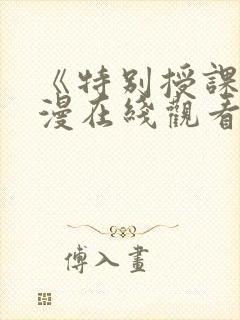 《特别授課
漫在綫觀看
傅入畫